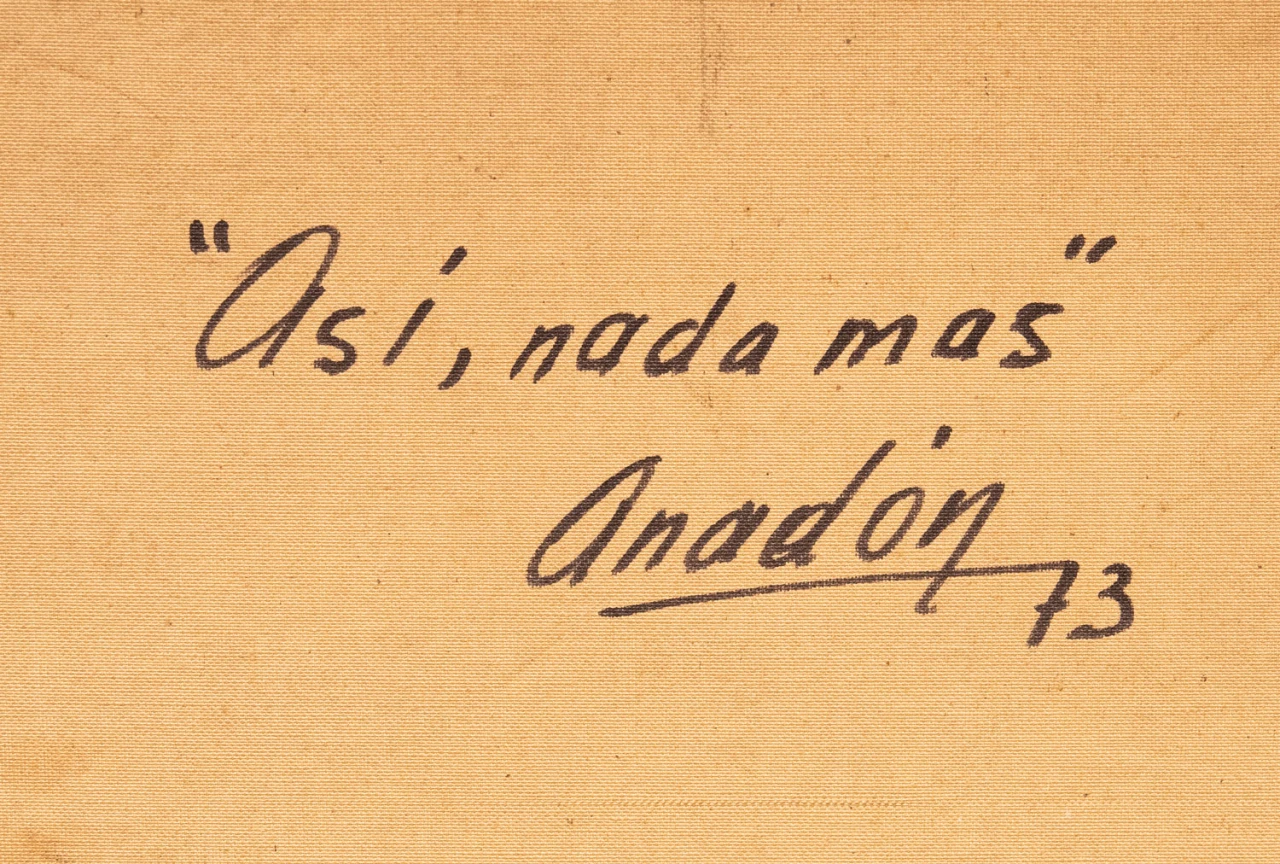 "Así, nada mas"
Anadón
73